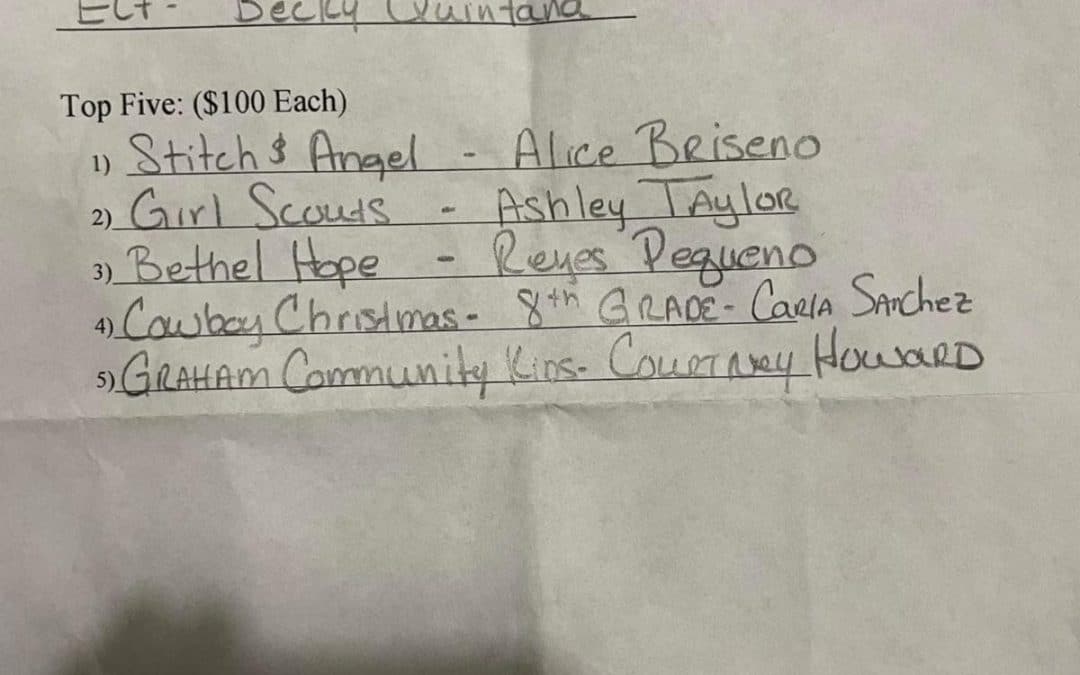 Elf - Becky Quintana
Top Five: ($100 Each)
1) Stitch & Angel - Alice Briseno
2) Girl Scouts - Ashley Taylor
3) Bethel Hope - Reyes Pequeno
4) Cowboy Christmas - 8th GRADE - Carla Sanchez
5) GRAHAM Community Kids - Courtney Howard